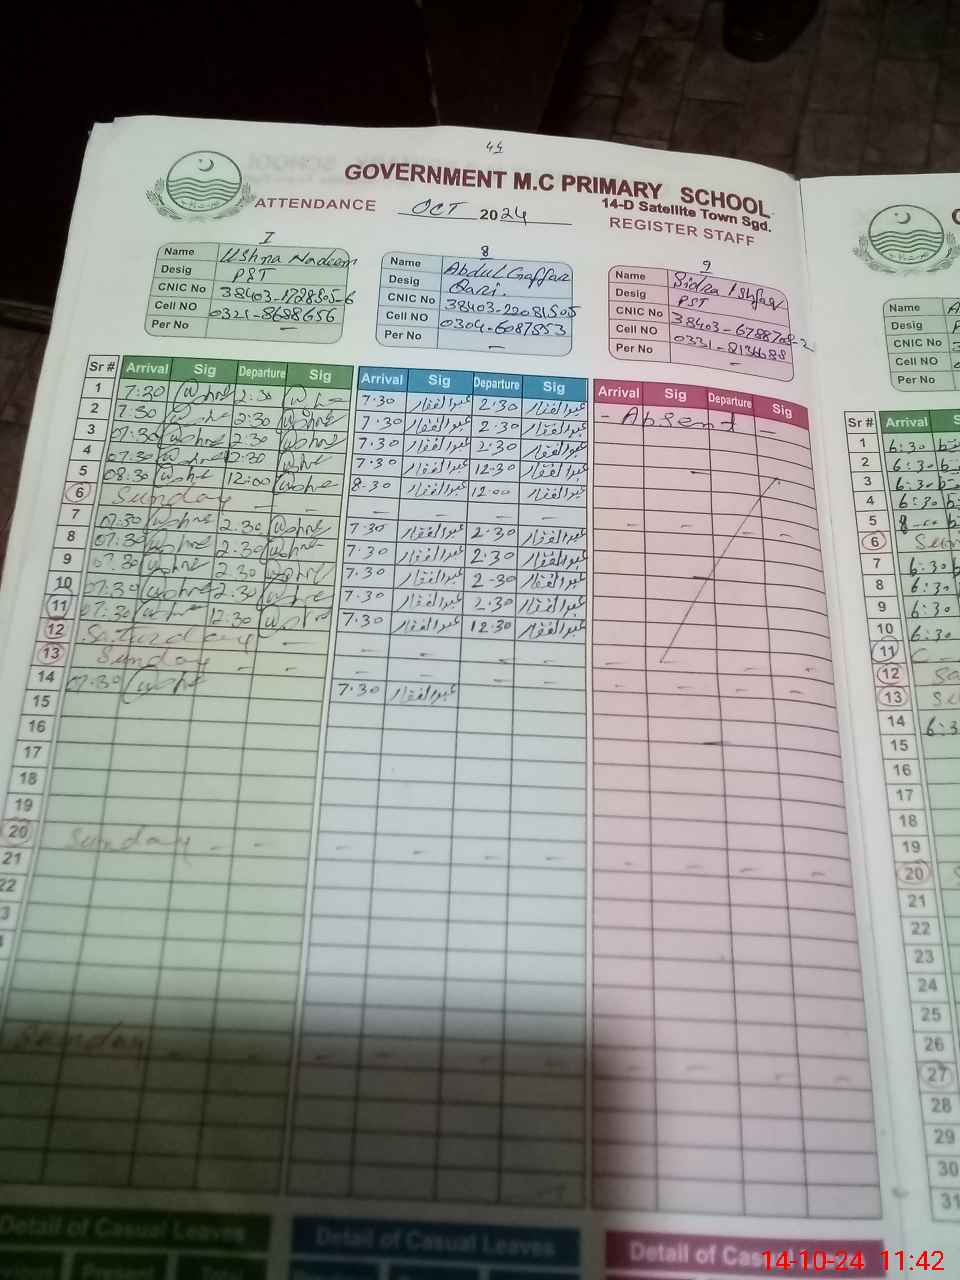 44
GOVERNMENT M.C PRIMARY SCHOOL
14-D Satellite Town Sgd.
ATTENDANCE OCT 2024 REGISTER STAFF
7
Name Ushna Nadeem
Desig PST
CNIC No 38403-1728505-6
Cell NO 0321-8688656
Per No —
8
Name Abdul Gaffar
Desig Qari.
CNIC No 38403-2208150-5
Cell NO 0304-6087553
Per No —
9
Name Sidra Ishfaq
Desig PST
CNIC No 38403-6788708-2
Cell NO 0331-8136688
Per No —
Name
Desig
CNIC No
Cell NO
Per No
Sr # Arrival Sig Departure Sig Arrival Sig Departure Sig Arrival Sig Departure Sig Sr # Arrival
1 7:30 2:30 7.30 عبدالغفار 2.30 عبدالغفار - Absent - 1 6:30
2 7:30 2:30 7.30 عبدالغفار 2.30 عبدالغفار 2 6:30
3 07:30 2:30 7.30 عبدالغفار 2.30 عبدالغفار 3 6:30
4 07:30 12:30 7.30 عبدالغفار 12.30 عبدالغفار 4 6:30
5 08:30 12:00 8.30 عبدالغفار 12.00 عبدالغفار 5
6 Sunday - - - - - - - - 6
7 07:30 2.30 7.30 عبدالغفار 2.30 عبدالغفار 7 6:30
8 07:30 2.30 7.30 عبدالغفار 2.30 عبدالغفار 8 6:30
9 07:30 2.30 7.30 عبدالغفار 2.30 عبدالغفار 9 6:30
10 07:30 2:30 7.30 عبدالغفار 2.30 عبدالغفار 10 6:30
11 07:30 12:30 7.30 عبدالغفار 12.30 عبدالغفار 11
12 Saturday - - - - - - - - 12
13 Sunday - - - - - - - - - 13
14 07:30 7.30 عبدالغفار 14
15 15
16 16
17 17
18 18
19 19
20 Sunday - - - - - - - - - - 20
21 21
22 22
3 23
4 24
25
26
Sunday - - - - - - - - - - 27
28
29
30
31
Detail of Casual Leaves Detail of Casual Leaves Detail of Cas
14-10-24 11:42